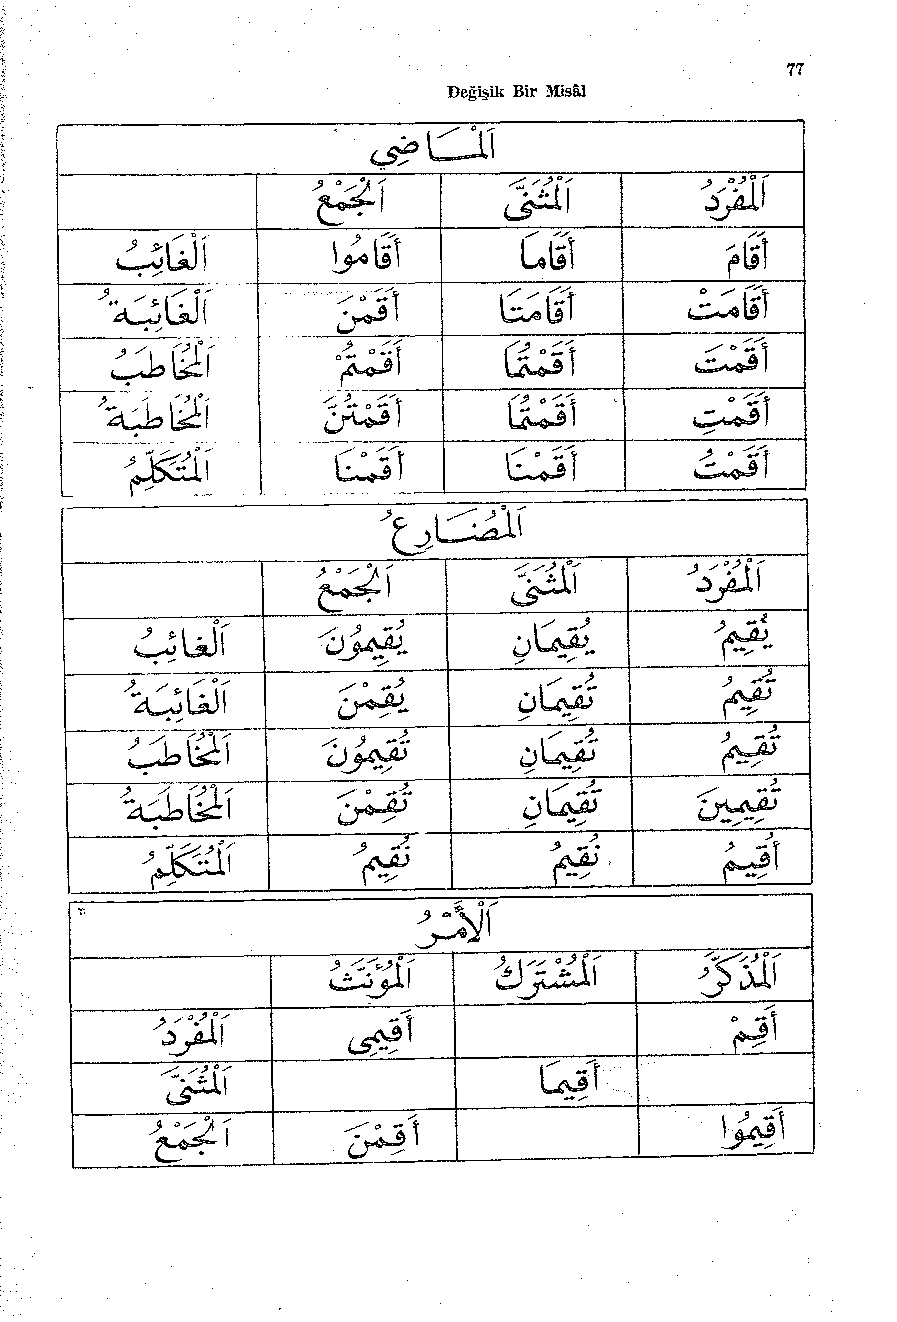 77
Değişik Bir Misâl
اَلْمَاضِي
اَلْمُفْرَدُ اَلْمُثَنَّى اَلْجَمْعُ
أَقَامَ أَقَامَا أَقَامُوا اَلْغَائِبُ
أَقَامَتْ أَقَامَتَا أَقَمْنَ اَلْغَائِبَةُ
أَقَمْتَ أَقَمْتُمَا أَقَمْتُمْ اَلْمُخَاطَبُ
أَقَمْتِ أَقَمْتُمَا أَقَمْتُنَّ اَلْمُخَاطَبَةُ
أَقَمْتُ أَقَمْنَا أَقَمْنَا اَلْمُتَكَلِّمُ
اَلْمُضَارِعُ
اَلْمُفْرَدُ اَلْمُثَنَّى اَلْجَمْعُ
يُقِيمُ يُقِيمَانِ يُقِيمُونَ اَلْغَائِبُ
تُقِيمُ تُقِيمَانِ يُقِمْنَ اَلْغَائِبَةُ
تُقِيمُ تُقِيمَانِ تُقِيمُونَ اَلْمُخَاطَبُ
تُقِيمِينَ تُقِيمَانِ تُقِمْنَ اَلْمُخَاطَبَةُ
أُقِيمُ نُقِيمُ نُقِيمُ اَلْمُتَكَلِّمُ
اَلْأَمْرُ
اَلْمُذَكَّرُ اَلْمُشْتَرَكُ اَلْمُؤَنَّثُ
أَقِمْ أَقِيمِى اَلْمُفْرَدُ
أَقِيمَا اَلْمُثَنَّى
أَقِيمُوا أَقِمْنَ اَلْجَمْعُ